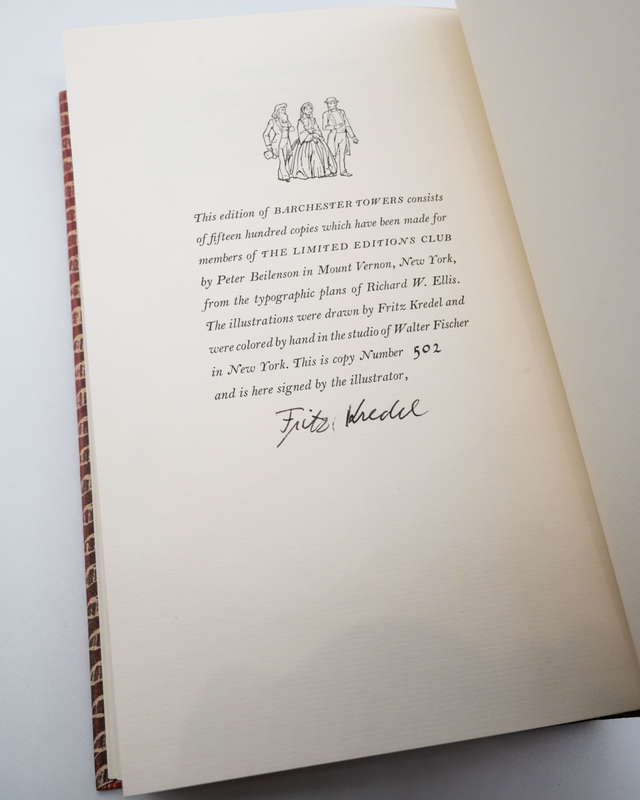 This edition of BARCHESTER TOWERS consists
of fifteen hundred copies which have been made for
members of THE LIMITED EDITIONS CLUB
by Peter Beilenson in Mount Vernon, New York,
from the typographic plans of Richard W. Ellis.
The illustrations were drawn by Fritz Kredel and
were colored by hand in the studio of Walter Fischer
in New York. This is copy Number 502
and is here signed by the illustrator,
Fritz Kredel